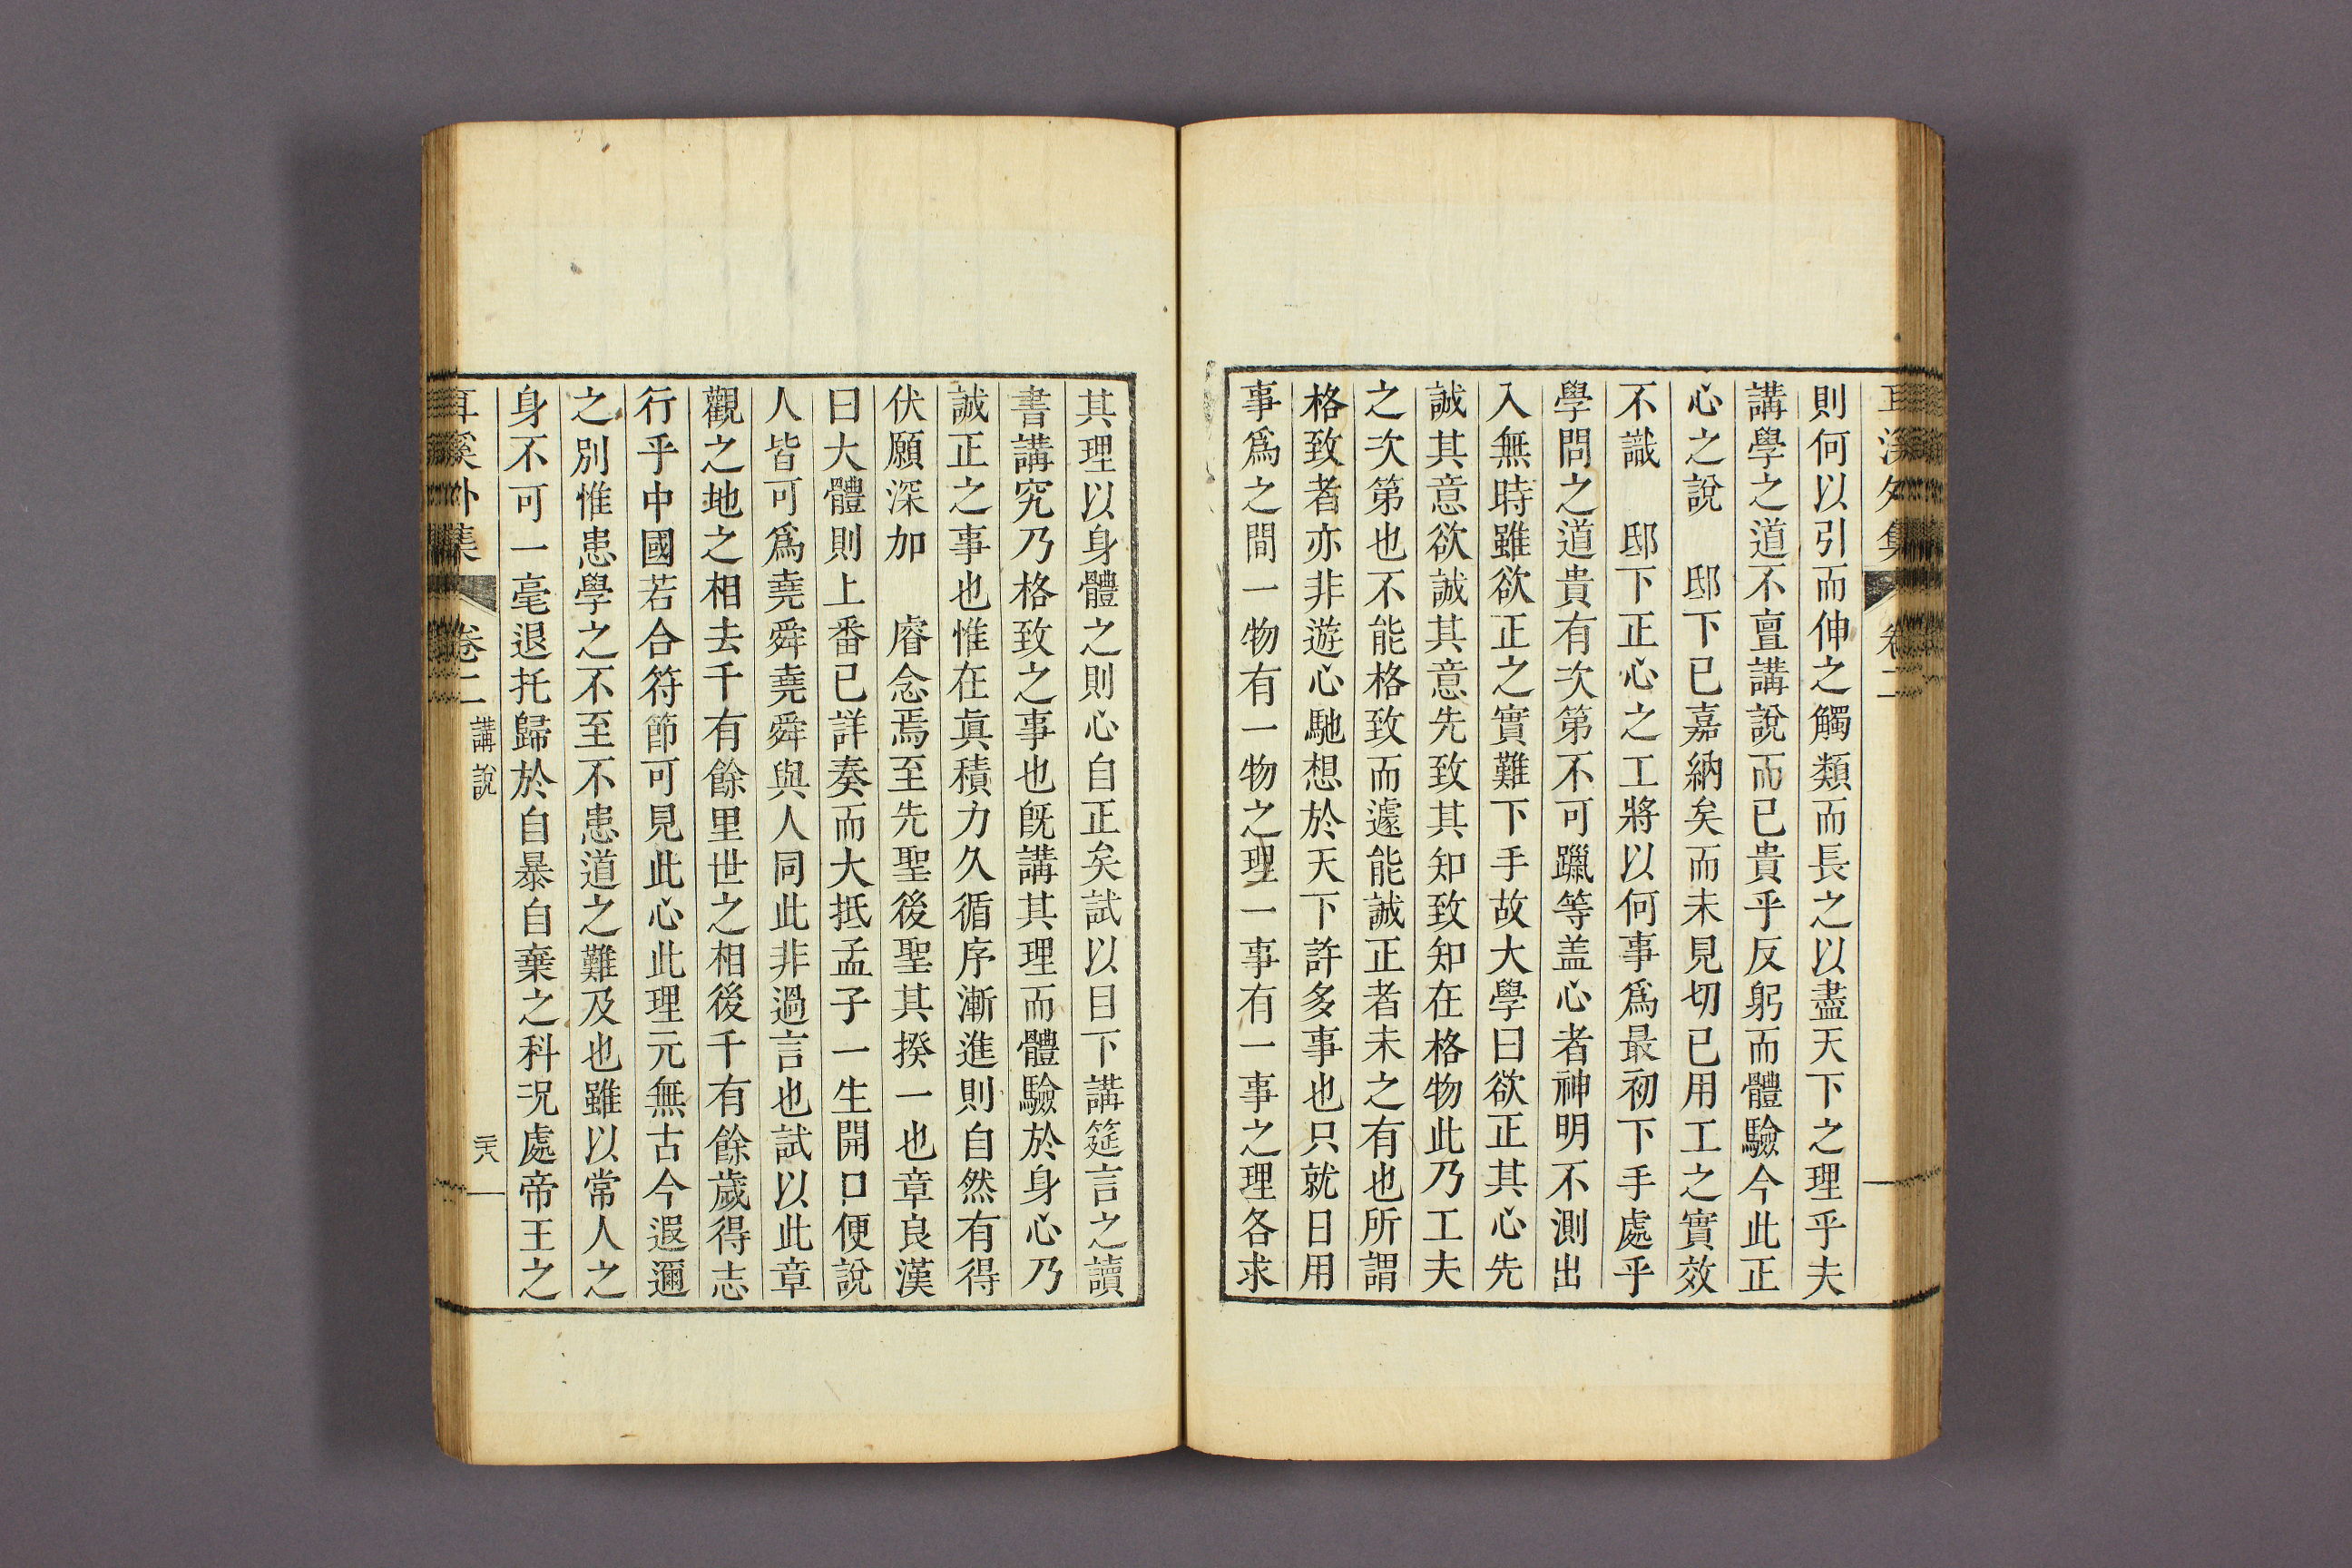 耳溪外集 卷二
則何以引而伸之觸類而長之以盡天下之理乎夫
講學之道不亶講說而已貴乎反躬而體驗今此正
心之說 邸下已嘉納矣而未見切已用工之實效
不識 邸下正心之工將以何事爲最初下手處乎
學問之道貴有次第不可躐等盖心者神明不測出
入無時雖欲正之實難下手故大學曰欲正其心先
誠其意欲誠其意先致其知致知在格物此乃工夫
之次第也不能格致而遽能誠正者未之有也所謂
格致者亦非遊心馳想於天下許多事也只就日用
事爲之間一物有一物之理一事有一事之理各求
其理以身體之則心自正矣試以目下講筵言之讀
書講究乃格致之事也旣講其理而體驗於身心乃
誠正之事也惟在眞積力久循序漸進則自然有得
伏願深加 睿念焉至先聖後聖其揆一也章良漢
曰大體則上番已詳奏而大抵孟子一生開口便說
人皆可爲堯舜堯舜與人同此非過言也試以此章
觀之地之相去千有餘里世之相後千有餘歲得志
行乎中國若合符節可見此心此理元無古今遐邇
之別惟患學之不至不患道之難及也雖以常人之
身不可一毫退托歸於自暴自棄之科况處帝王之
耳溪外集 卷二 講說 二十八